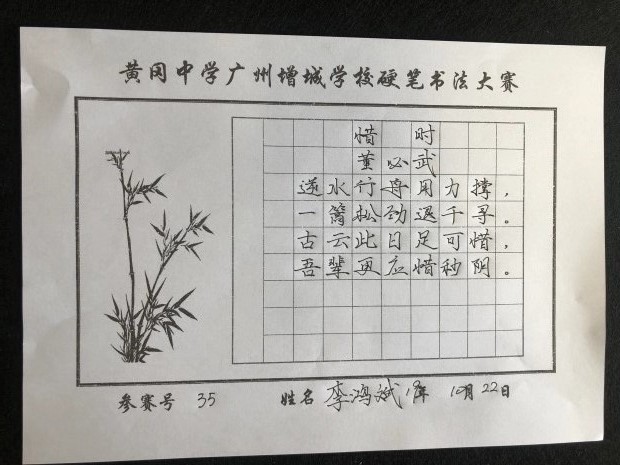 黄冈中学广州增城学校硬笔书法大赛
惜时
董必武
逆水行舟用力撑，
一篙松劲退千寻。
古云此日足可惜，
吾辈更应惜秒阴。
参赛号 35 姓名 李鸿斌 19年 10月22日